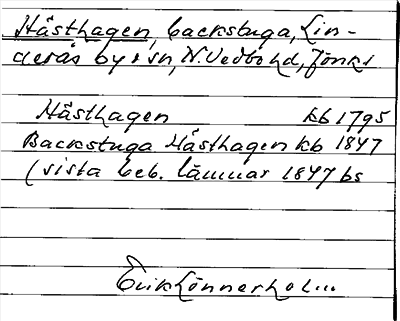 Hästhagen, backstuga, Lin-
derås by o sn, N. Vedbo hd, Jönk l
Hästhagen kb 1795
Backstuga Hästhagen kb 1847
(sista beb. lämnar 1847 bs
Erik Lönnerhol...